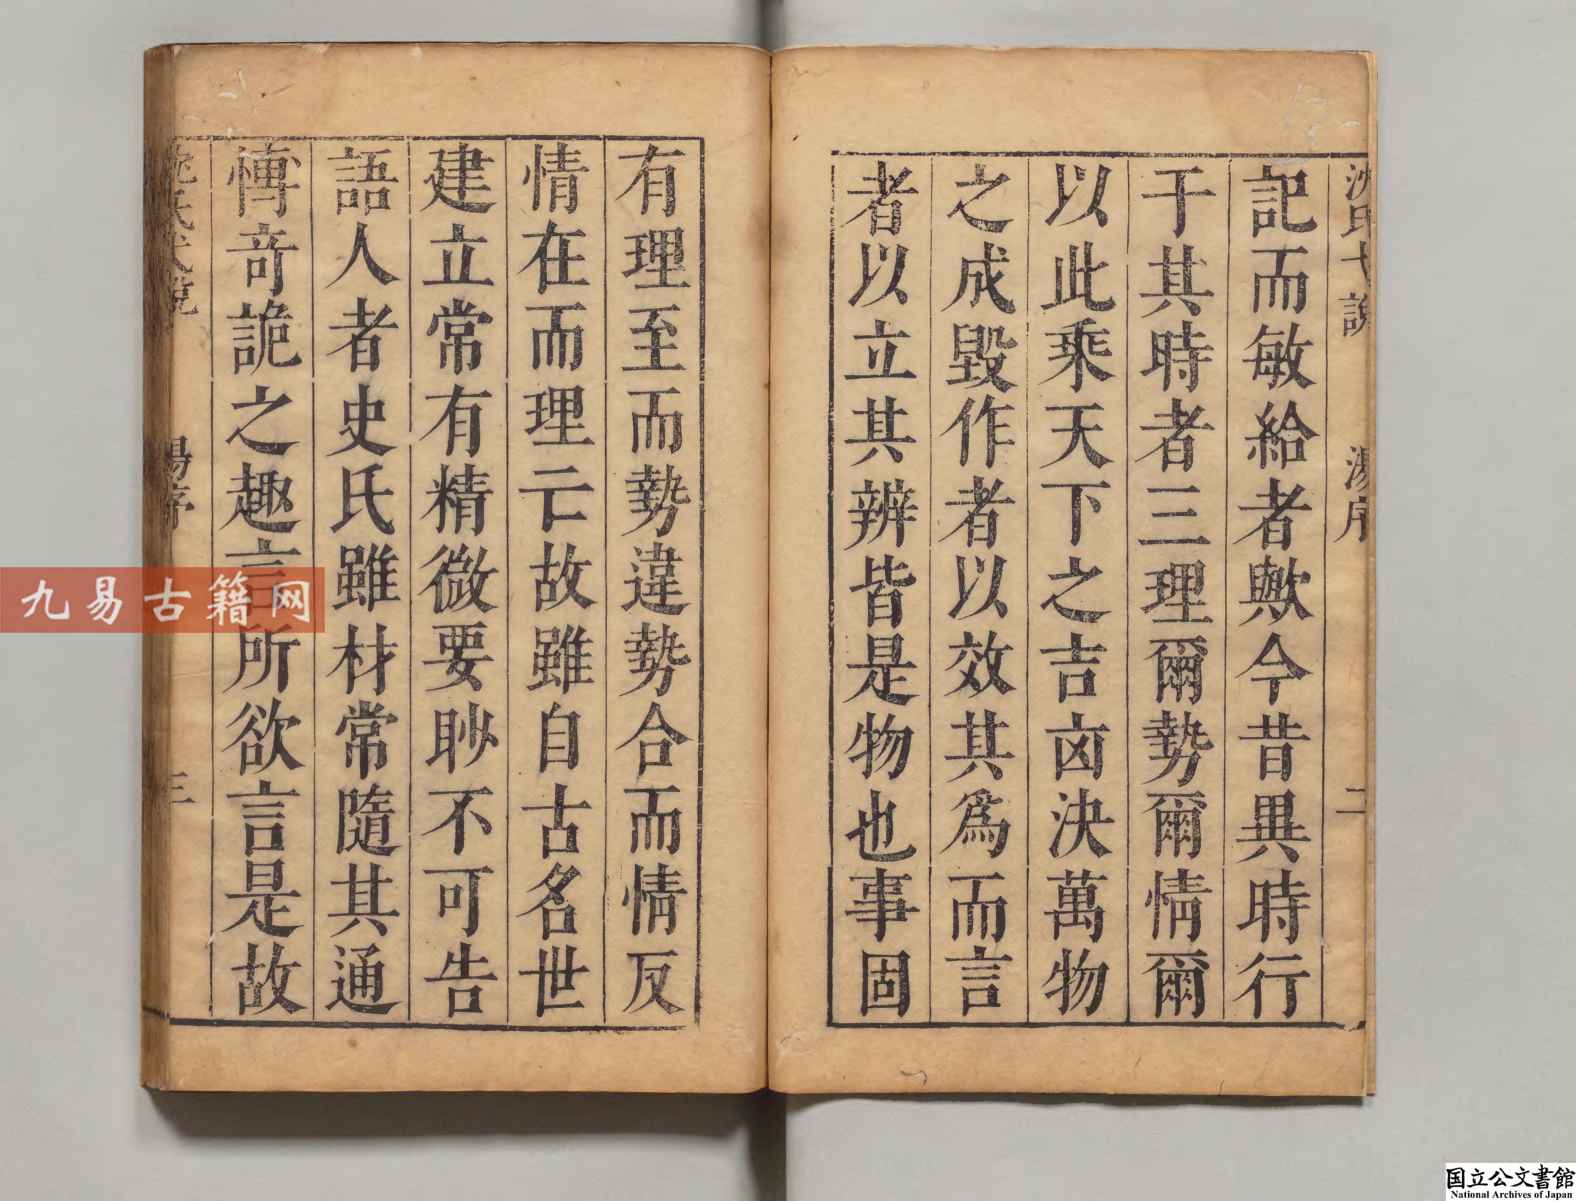 沈氏弋說
湯序
二
記而敏給者歟今昔異時行
于其時者三理爾勢爾情爾
以此乘天下之吉凶決萬物
之成毀作者以效其為而言
者以立其辨皆是物也事固
有理至而勢違勢合而情反
情在而理亡故雖自古名世
建立常有精微要眇不可告
語人者史氏雖材常隨其通
慱奇詭之趣言所欲言是故
三
九易古籍网
国立公文書館
National Archives of Japan